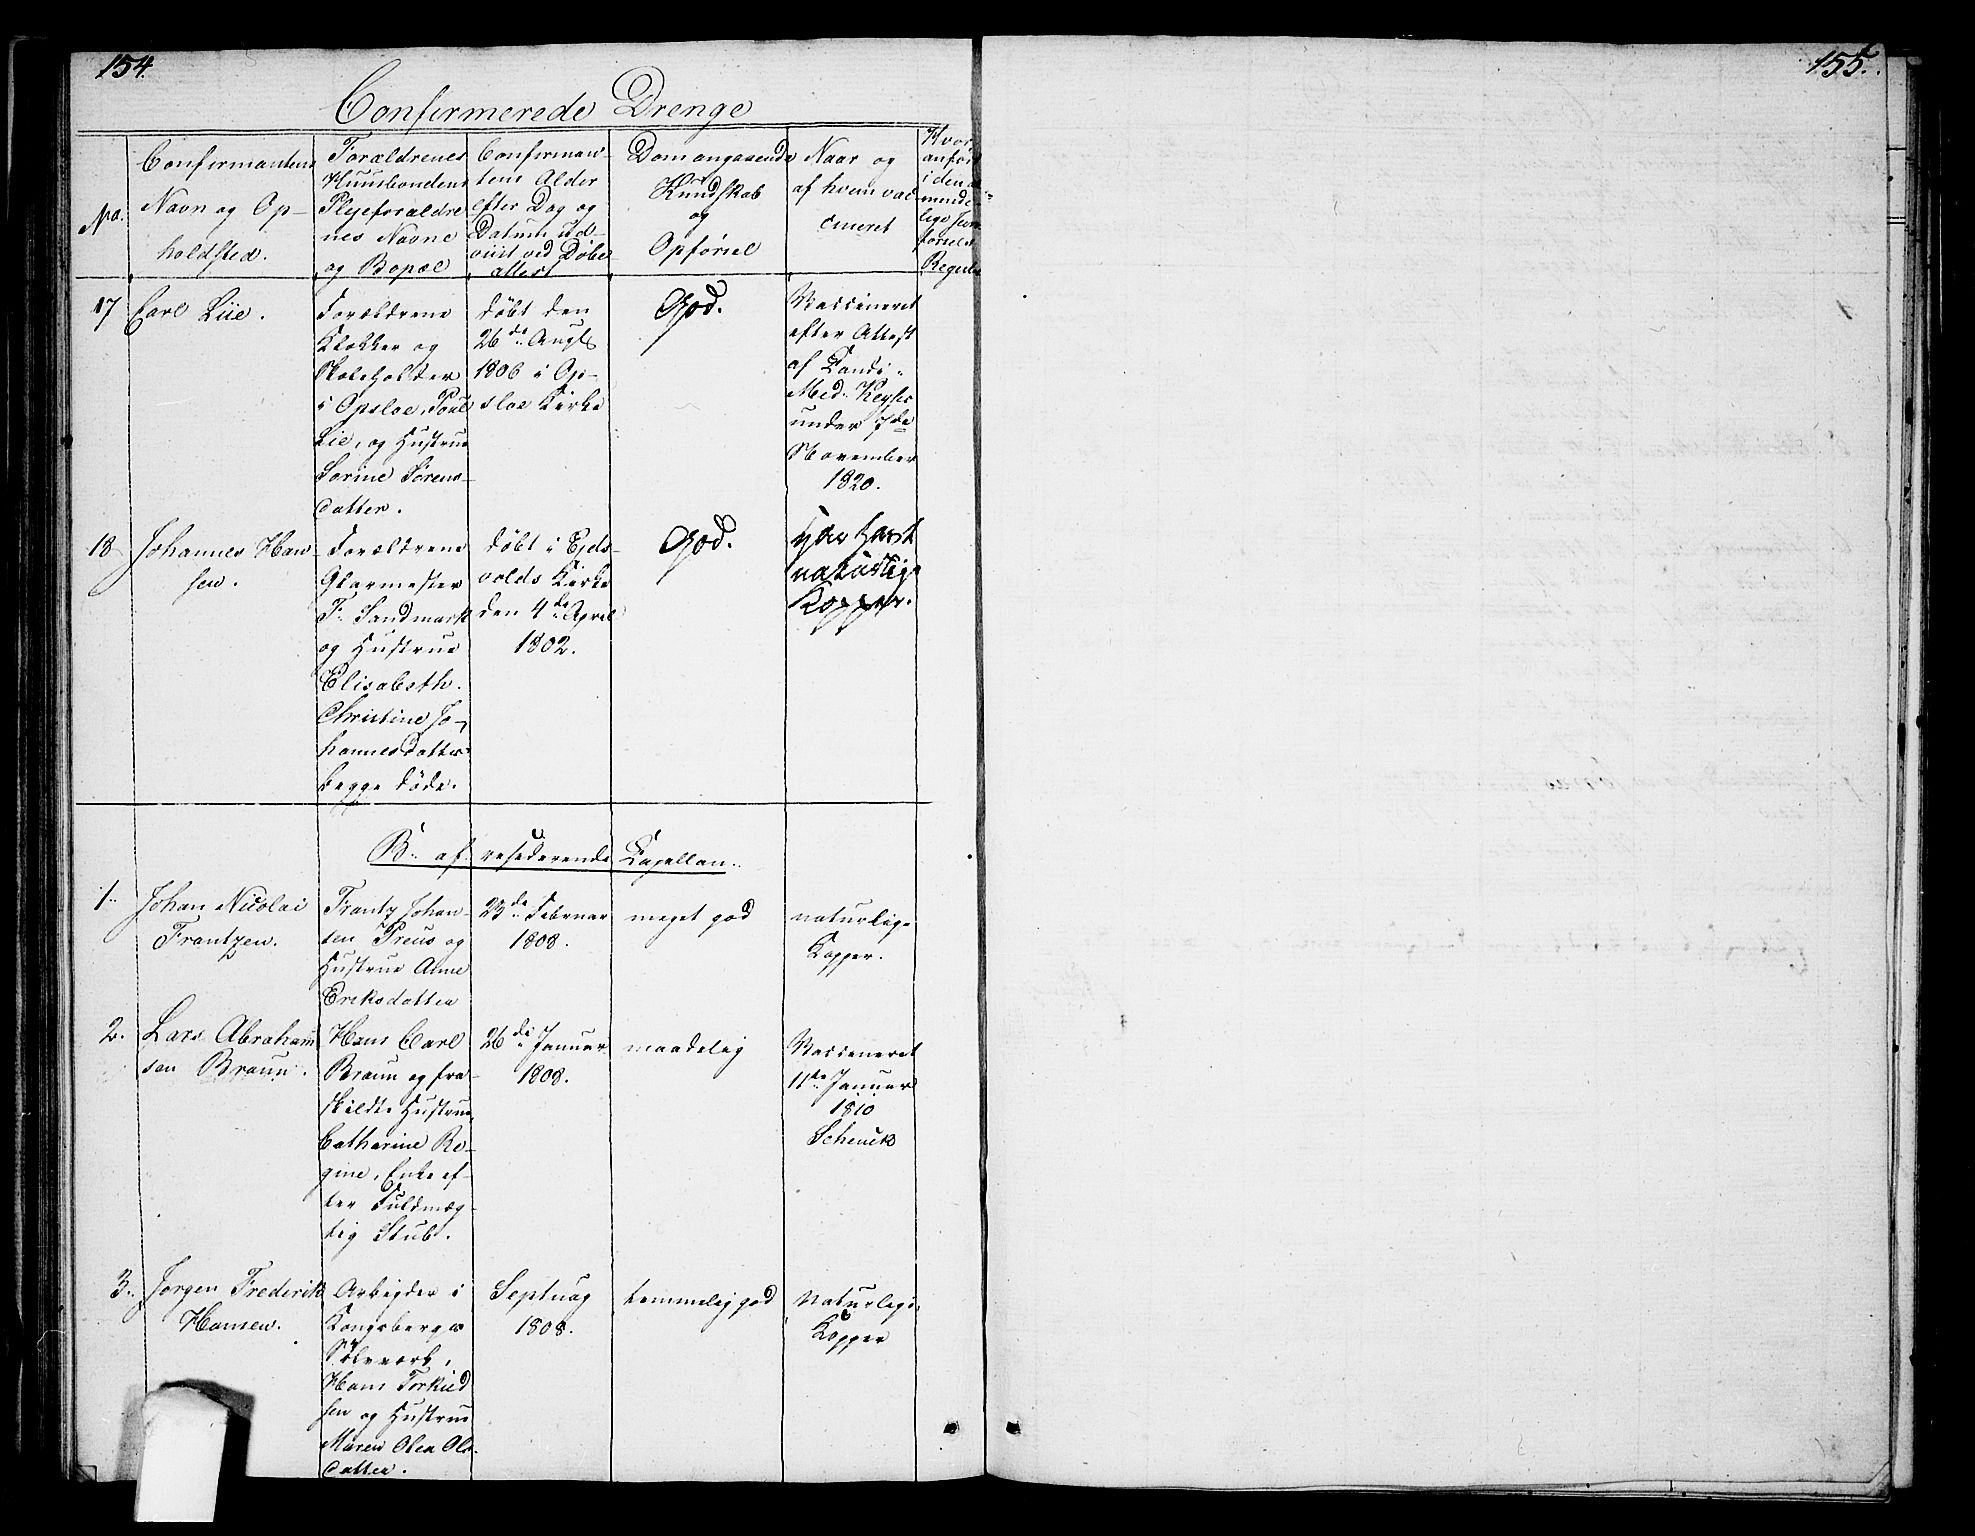 154.
155.
Confirmerede Drenge
No.
Confirmantens
Navn og Op-
holdsted.
Forældrenes
Huusbondens
Plejeforældre
nes Navne
og Bopæl
Confirman-
tens Alder
efter Dag og
Datum ud-
viist ved Døbe
attest
Dom angaaende
Kundskab
og
Opførsel
Naar og
af hvem vac
cineret
Hvor
anført
i den al-
minde-
lige Jevn
førsels
Regist
17
Carl Liie.
Forældrene
Klokker og
Skoleholder
i Opsloe, Poul
Lie, og Hustrue
Sorine Sørens-
datter.
døbt den
26de Augts
1806 i Op-
sloe Kirke
God.
Vaccineret
efter Attest
af Candi.
Med. Keyser
under 7de
November
1820.
18
Johannes Han-
sen.
Forældrene
Glarmester
F. Sandmark
og Hustrue
Elisabeth.
Christine Jo-
hannesdatter
begge døde.
døbt i Ejds-
volds Kirke
den 4de April
1802.
God.
har havt
naturlige
Kopper.
B. af resederende Capellan.
1.
Johan Nicolai
Frantzen.
Frantz Johan-
sen Preus og
Hustrue Anne
Eriksdatter
23de Februar
1808.
meget god
naturlige
Kopper.
2.
Lars Abraham
sen Braun.
Hans Carl
Braun og fra-
skildte Hustrue
Catharine Re-
gine, Enke ef-
ter Fuldmæg-
tig Stub.
26de Januar
1808.
maadelig
Vaccineret
11te Januar
1810
Schenck
3.
Jørgen Frederik
Hansen.
Arbejder i
Kongsbergs
Sølvværk,
Hans Torkild
sen og Hustrue
Maren Olea Ols-
datter.
Septuag
1808.
temmelig god
Naturlige
Kopper